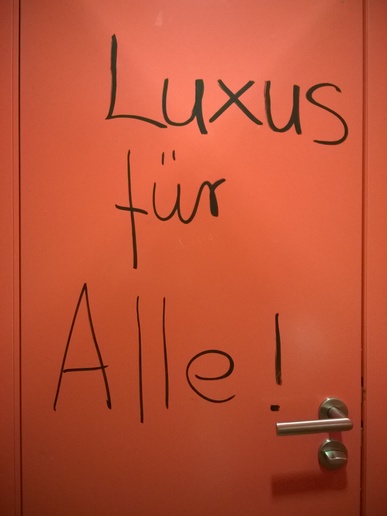 Luxus
für
Alle!